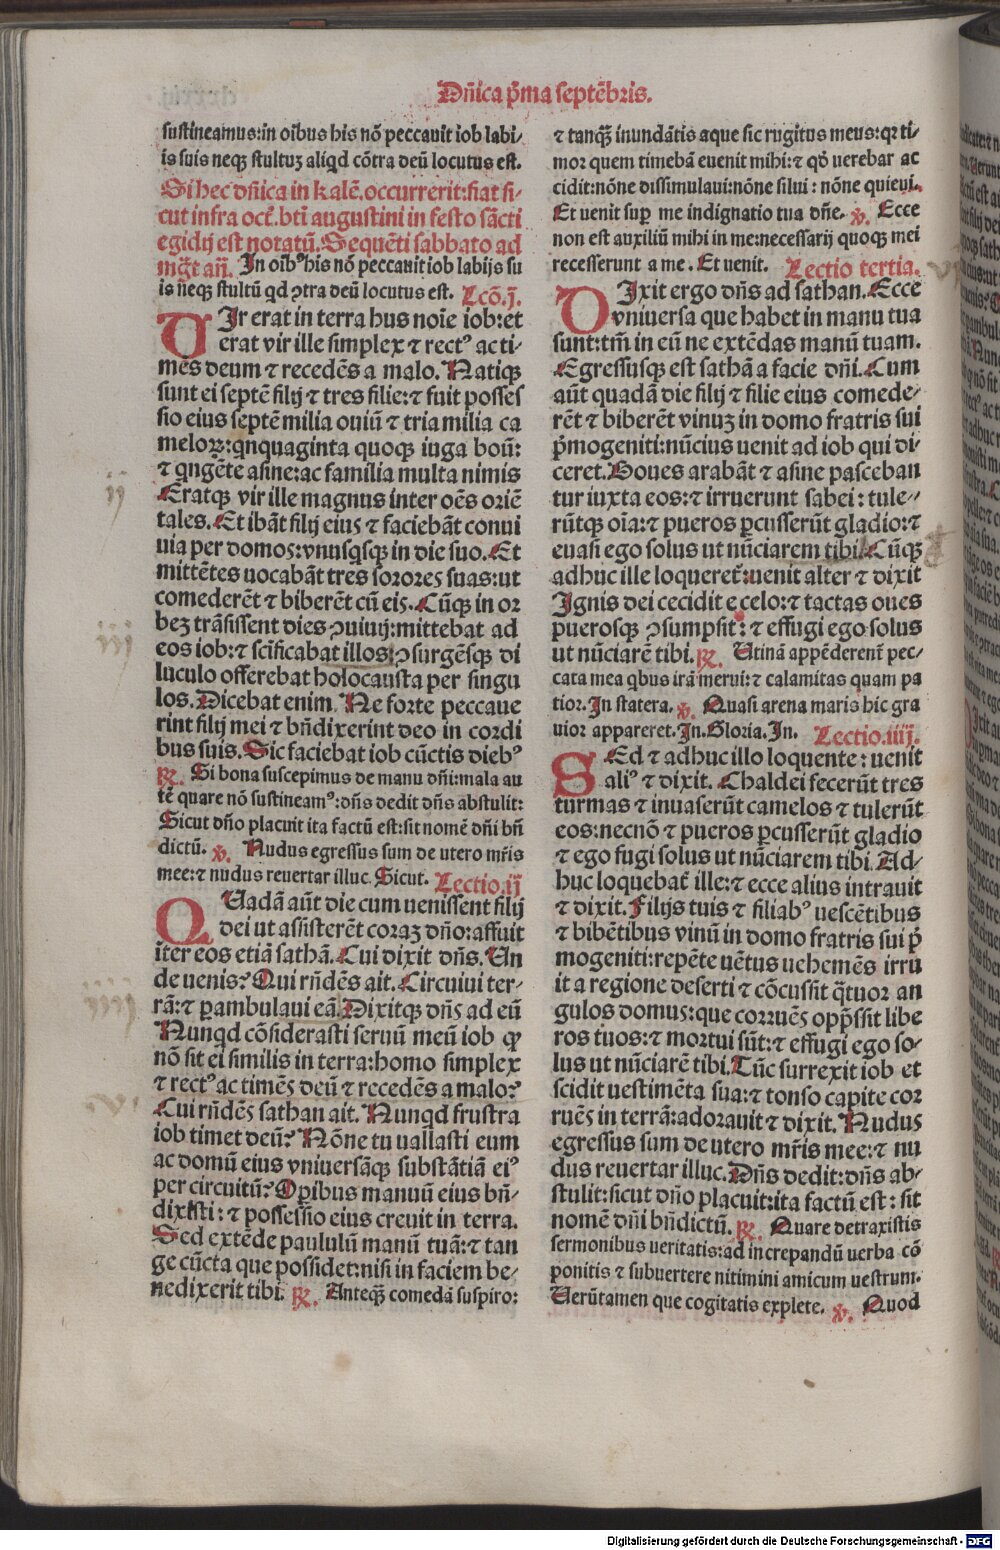 Dñica p̃ma septẽbris.
sustineamus: in oĩbus his nõ peccauit iob labi/
is suis neqꝫ stultuꝫ aliqd cõtra deũ locutus est.
Si hec dñica in kalẽ. occurrerit: fiat si/
cut infra oct̃. bti augustini in festo sãcti
egidij est notatũ. Sequẽti sabbato ad
mg̃t añ. In oĩbꝰ his nõ peccauit iob labijs su
is neqꝫ stultũ qd ꝯtra deũ locutus est. Lcõ.j.
VIr erat in terra hus noĩe iob: et
erat vir ille simplex ⁊ rectꝰ ac ti/
mẽs deum ⁊ recedẽs a malo. Natiqꝫ
sunt ei septẽ filij ⁊ tres filie: ⁊ fuit posses
sio eius septẽ milia ouiũ ⁊ tria milia ca
meloꝝ: qnquaginta quoqꝫ iuga boũ:
⁊ qngẽte asine: ac familia multa nimis
Eratqꝫ vir ille magnus inter oẽs oriẽ
tales. Et ibãt filij eius ⁊ faciebãt conui
uia per domos: vnusqsqꝫ in die suo. Et
mittẽtes uocabãt tres sorores suas: ut
comederẽt ⁊ biberẽt cũ eis. Cũqꝫ in or
beꝫ trãsissent dies ꝯuiuij: mittebat ad
eos iob: ⁊ scificabat illos: ꝯsurgẽsqꝫ di
luculo offerebat holocausta per singu
los. Dicebat enim. Ne forte peccaue
rint filij mei ⁊ bñdixerint deo in cordi
bus suis. Sic faciebat iob cũctis diebꝰ
℟. Si bona suscepimus de manu dñi: mala au
tẽ quare nõ sustineamꝰ: dñs dedit dñs abstulit:
Sicut dño placuit ita factũ est: sit nomẽ dñi bñ
dictũ. ℣. Nudus egressus sum de utero mr̃is
mee: ⁊ nudus reuertar illuc. Sicut. Lectio.ij
QUadã aũt die cum uenissent filij
dei ut assisterẽt coraꝫ dño: affuit
iter eos etiã sathã. Cui dixit dñs. Un
de uenis? Qui rñdẽs ait. Circuiui ter/
rã: ⁊ ꝑambulaui eã. Dixitqꝫ dñs ad eũ
Nunqd cõsiderasti seruũ meũ iob ꝙ
nõ sit ei similis in terra: homo simplex
⁊ rectꝰ ac timẽs deũ ⁊ recedẽs a malo?
Cui rñdẽs sathan ait. Nunqd frustra
iob timet deũ? Nõne tu uallasti eum
ac domũ eius vniuersãqꝫ substãtiã eiꝰ
per circuitũ? Opibus manuũ eius bñ/
dixisti: ⁊ possessio eius creuit in terra.
Sed extẽde paululũ manũ tuã: ⁊ tan
ge cũcta que possidet: nisi in faciem be/
nedixerit tibi. ℟. Anteqꝫ comedã suspiro:
⁊ tanqꝫ̃ inundãtis aque sic rugitus meus: qꝛ ti/
mor quem timebã euenit mihi: ⁊ qđ uerebar ac
cidit: nõne dissimulaui: nõne silui: nõne quieui.
Et uenit suꝑ me indignatio tua dñe. ℣. Ecce
non est auxiliũ mihi in me: necessarij quoqꝫ mei
recesserunt a me. Et uenit. Lectio tertia.
DIxit ergo dñs ad sathan. Ecce
vniuersa que habet in manu tua
sunt: tm̃ in eũ ne extẽdas manũ tuam.
Egressusqꝫ est sathã a facie dñi. Cum
aũt quadã die filij ⁊ filie eius comede/
rẽt ⁊ biberẽt vinuꝫ in domo fratris sui
p̃mogeniti: nũcius uenit ad iob qui di
ceret. Boues arabãt ⁊ asine pasceban
tur iuxta eos: ⁊ irruerunt sabei: tule/
rũtqꝫ oĩa: ⁊ pueros ꝑcusserũt gladio: ⁊
euasi ego solus ut nũciarem tibi. Cũqꝫ
adhuc ille loqueret̃: uenit alter ⁊ dixit
Ignis dei cecidit e celo: ⁊ tactas oues
puerosqꝫ ꝯsumpsit: ⁊ effugi ego solus
ut nũciarẽ tibi. ℟. Utinã appẽderent̃ pec/
cata mea qbus irã merui: ⁊ calamitas quam pa
tior. In statera. ℣. Quasi arena maris hic gra
uior appareret. In. Gloria. In. Lectio.iiij.
SEd ⁊ adhuc illo loquente: uenit
aliꝰ ⁊ dixit. Chaldei fecerũt tres
turmas ⁊ inuaserũt camelos ⁊ tulerũt
eos: necnõ ⁊ pueros ꝑcusserũt gladio
⁊ ego fugi solus ut nũciarem tibi. Ad/
huc loquebat̃ ille: ⁊ ecce alius intrauit
⁊ dixit. Filijs tuis ⁊ filiabꝰ uescẽtibus
⁊ bibẽtibus vinũ in domo fratris sui p̃
mogeniti: repẽte uẽtus uehemẽs irru
it a regione deserti ⁊ cõcussit q̃tuor an
gulos domus: que corruẽs opp̃ssit libe
ros tuos: ⁊ mortui sũt: ⁊ effugi ego so/
lus ut nũciarẽ tibi. Tũc surrexit iob et
scidit uestimẽta sua: ⁊ tonso capite cor
ruẽs in terrã: adorauit ⁊ dixit. Nudus
egressus sum de utero mr̃is mee: ⁊ nu
dus reuertar illuc. Dñs dedit: dñs ab/
stulit: sicut dño placuit: ita factũ est: sit
nomẽ dñi bñdictũ. ℟. Quare detraxistis
sermonibus ueritatis: ad increpandũ uerba cõ
ponitis ⁊ subuertere nitimini amicum uestrum.
Uerũtamen que cogitatis explete. ℣. Quod
ij
iij
iiij
v
Digitalisierung gefördert durch die Deutsche Forschungsgemeinschaft - DFG